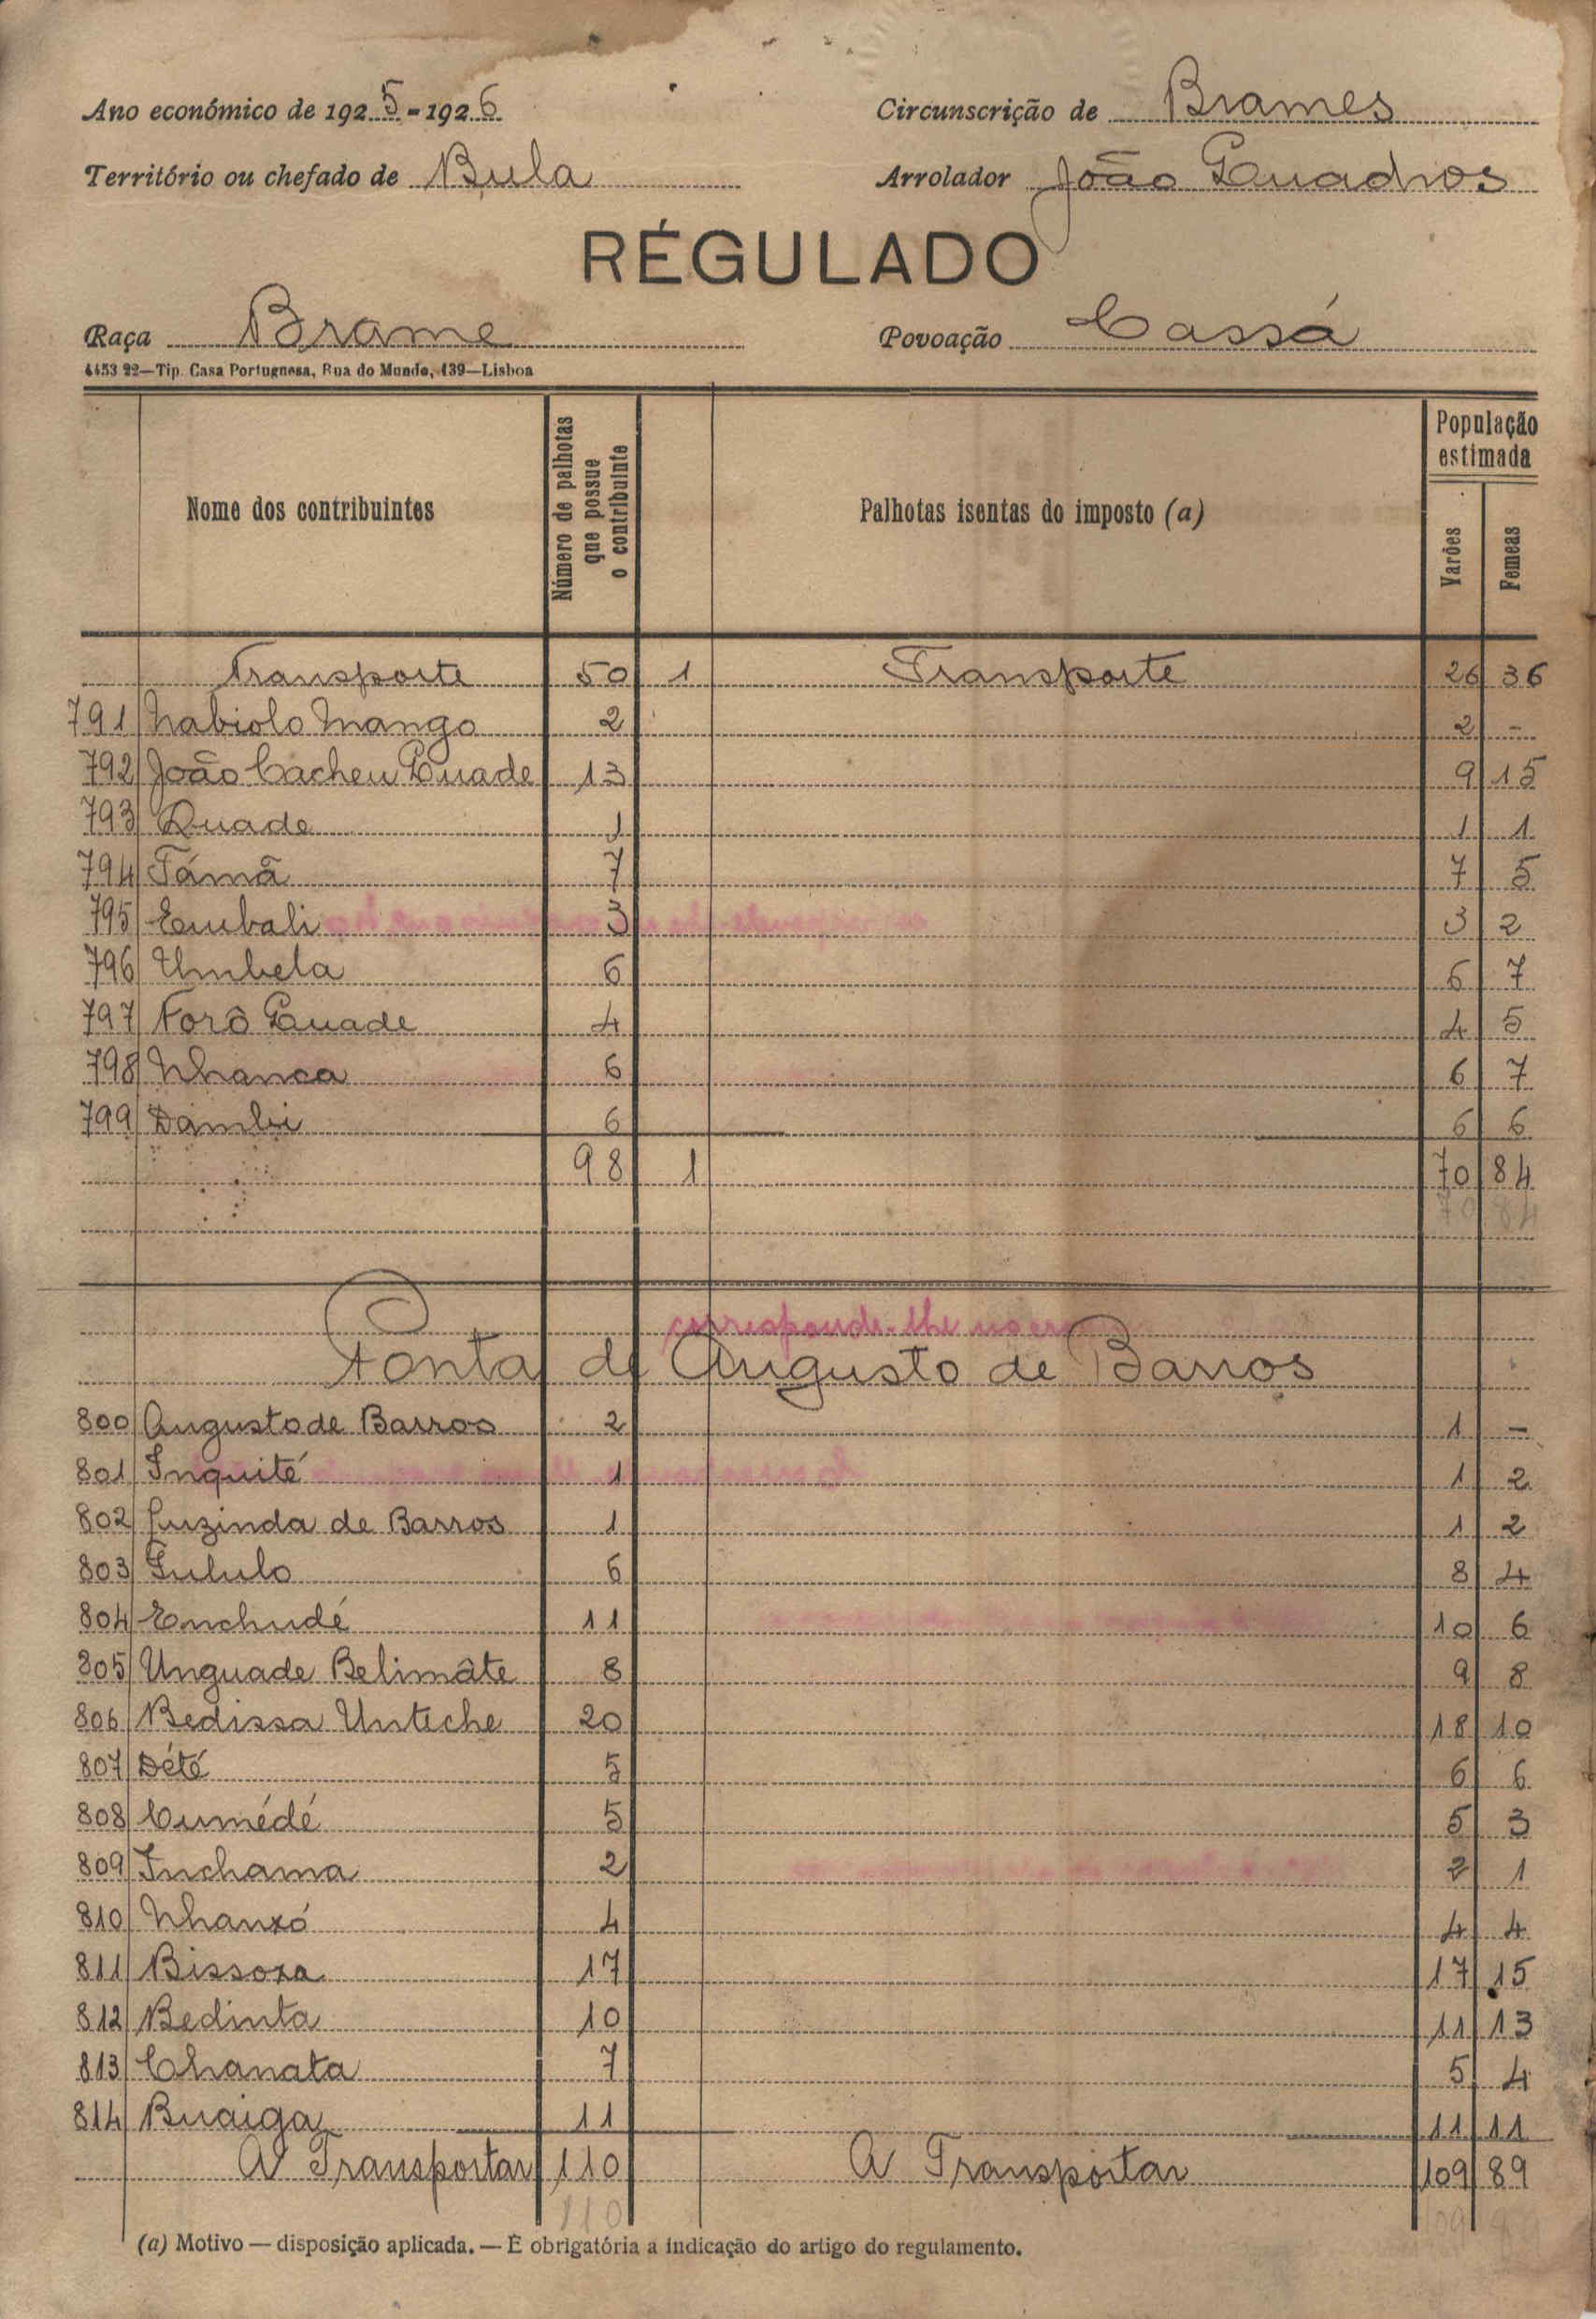 Ano económico de 1925-1926 Circunscrição de Brames
Território ou chefado de Bula Arrolador João Quadros
RÉGULADO
Raça Brame Povoação Cassá
4453 22—Tip. Casa Portuguesa, Rua do Mundo, 139—Lisboa
Nome dos contribuintes Número de palhotas que possue o contribuinte Palhotas isentas do imposto (a) População estimada Varões Femeas
Transporte 50 1 Transporte 26 36
791 Nabiolo Mango 2 2 -
792 João Cacheu Quade 13 9 15
793 Quade 1 1 1
794 Támã 7 7 5
795 Embali 3 3 2
796 Umbela 6 6 7
797 Forô Quade 4 4 5
798 Nhanca 6 6 7
799 Dambi 6 6 6
98 1 70 84
70 84
corresponde-lhe
Ponta de Augusto de Barros
800 Augusto de Barros 2 1 -
801 Inquité 1 1 2
802 Luzinda de Barros 1 1 2
803 Fululo 6 8 4
804 Enchudé 11 10 6
805 Unguade Belimâte 8 9 8
806 Bedissa Unteche 20 18 10
807 Dété 5 6 6
808 Cumédé 5 5 3
809 Inchama 2 2 1
810 Nhanxó 4 4 4
811 Bissora 17 17 15
812 Bedinta 10 11 13
813 Chanata 7 5 4
814 Buaiga 11 11 11
A Transportar 110 A Transportar 109 89
110 109
(a) Motivo — disposição aplicada. — É obrigatória a indicação do artigo do regulamento.